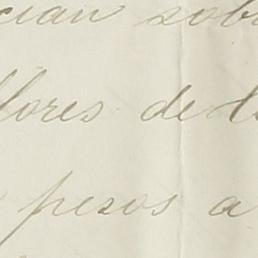 cian sob
lores de l
pesos a